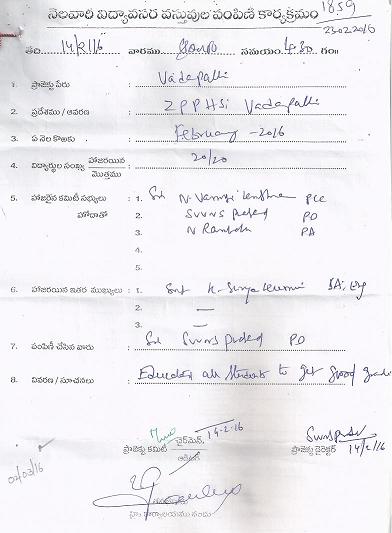 నెలవారి విద్యావసర వస్తువుల పంపిణీ కార్యక్రమం 1859
23022016
తేది 14/2/16 వారము సమయం 4.30 గం॥
1. ప్రాజెక్టు పేరు : Vadapalli
2. ప్రదేశము / ఆవరణ : ZPPHS Vadapalli
3. ఏ నెల కొఱకు : February - 2016
4. విద్యార్థుల సంఖ్య హాజరయిన / మొత్తము : 20/20
5. హాజరైన కమిటీ సభ్యులు హోదాతో : 1. Sri N. Vamsi PCC
2. SVVNS Prasad PO
3. N Rambabu PA
4.
5.
6. హాజరయిన ఇతర ముఖ్యులు : 1. Smt K. Surya Kumari SA, Eng
2. —
3. —
7. పంపిణీ చేసిన వారు : Sri SVVNS Prasad PO
8. వివరణ / సూచనలు : Educated all students to get good grade
14-2-16
ప్రాజెక్టు కమిటీ చైర్‌మెన్,
ఆడిటర్
ప్రాజెక్టు డైరెక్టర్ 14/2/16
02/03/16
హై కార్యాలయము నందు